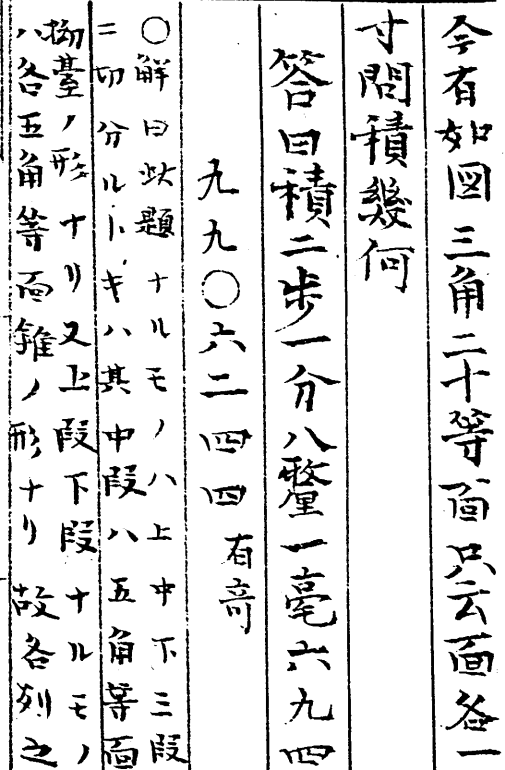 今有如図三角二十等面只云面各一
寸問積幾何
答曰積二歩一分八釐一毫六九四
九九〇六二四四有奇
〇解曰此題ナルモノハ上中下三段
ニ切分ルトキハ其中段ハ五角等面
拗臺ノ形ナリ又上段下段ナルモノ
ハ各五角等面錐ノ形ナリ故各列之